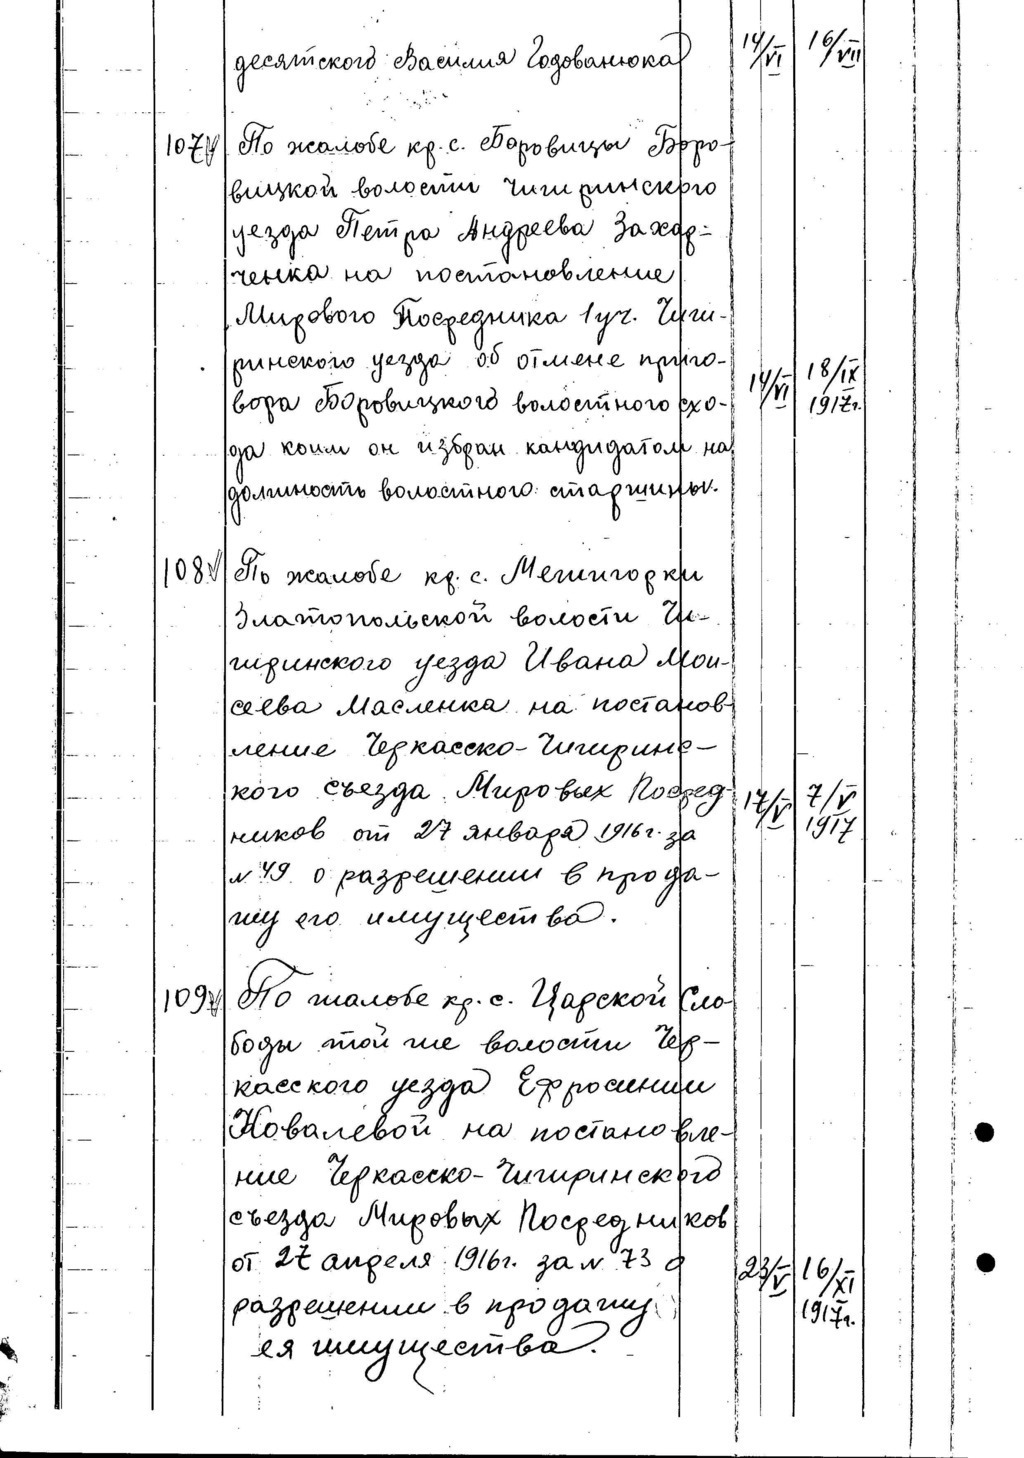 десятского Василия Годованюка 14/VI 16/VII
107 По жалобе кр. с. Боровицы Боро-
вицкой волости Чигиринского
уезда Петра Андреева Захар=
ченка на постановление
Мирового Посредника 1 уч. Чиги-
ринского уезда об отмене приго-
вора Боровицкого волостного схо- 14/VI 18/IX 1917г.
да коим он избран кандидатом на
должность волостного старшины.
108 По жалобе кр. с. Межигорки
Златопольской волости Чи-
гиринского уезда Ивана Мои-
сеева Масленка на постанов-
ление Черкасско-Чигиринс-
кого съезда Мировых Посред- 17/V 7/V 1917
ников от 27 января 1916г. за
№ 49 о разрешении в прода-
жу его имущества.
109 По жалобе кр. с. Царской Сло-
боды той же волости Чер-
касского уезда Ефросинии
Ковалевой на постановле-
ние Черкасско-Чигиринского
съезда Мировых Посредников
от 27 апреля 1916г. за № 73 о 23/V 16/XI 1917г.
разрешении в продажу
ея имущества.